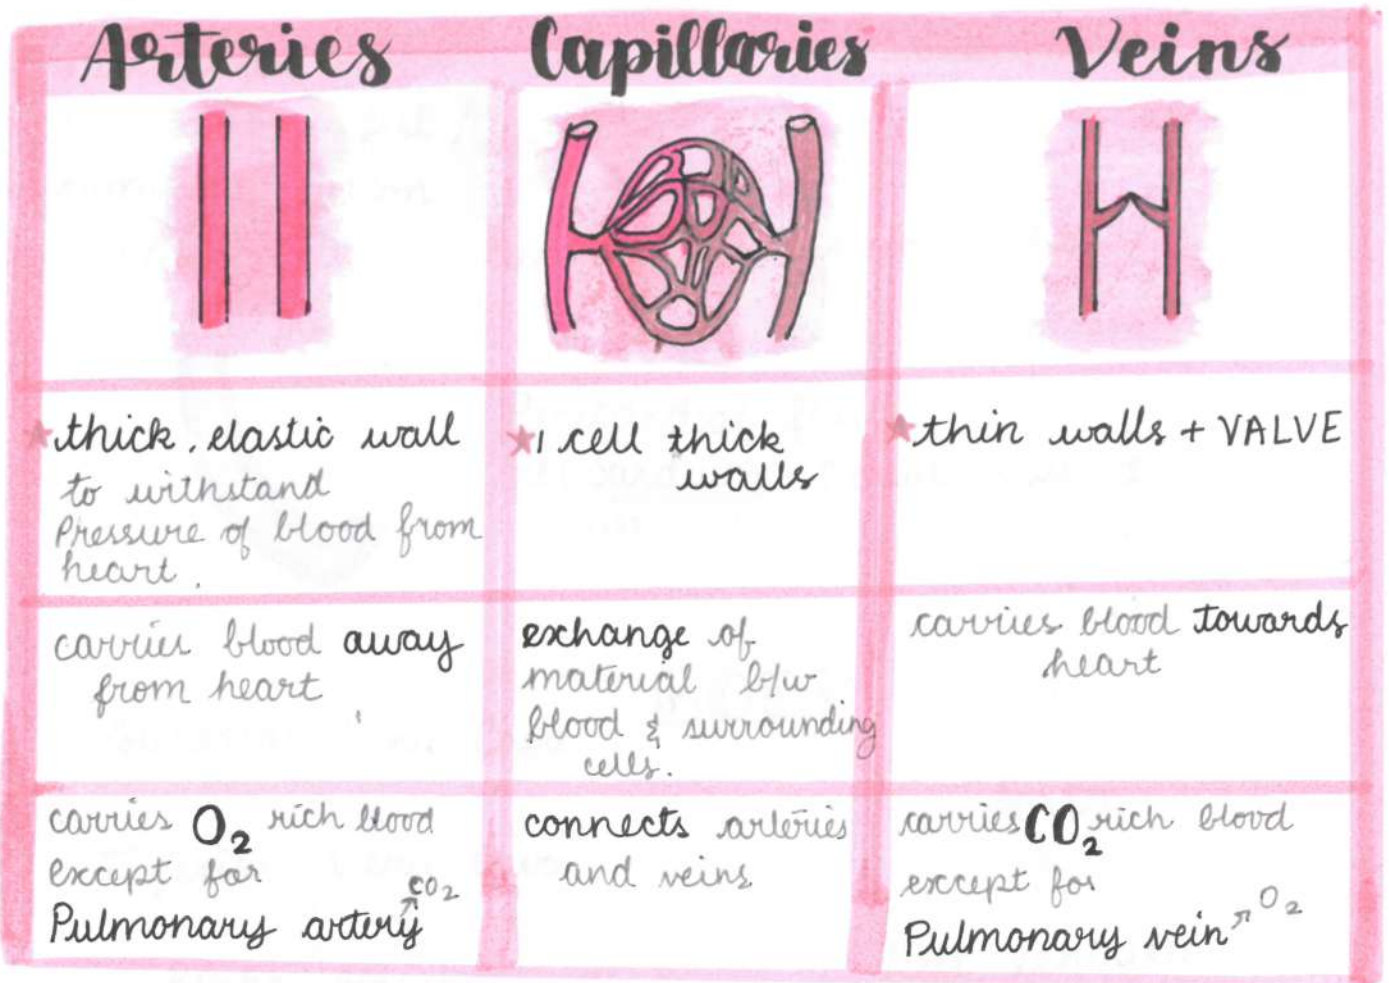 Arteries
Capillaries
Veins
thick, elastic wall
to withstand
Pressure of blood from
heart.
1 cell thick
walls
thin walls + VALVE
carries blood away
from heart
exchange of
material b/w
blood & surrounding
cells.
carries blood towards
heart
carries O₂ rich blood
except for
CO₂
Pulmonary artery
connects arteries
and veins
carries CO₂ rich blood
except for
Pulmonary vein ↗ O₂